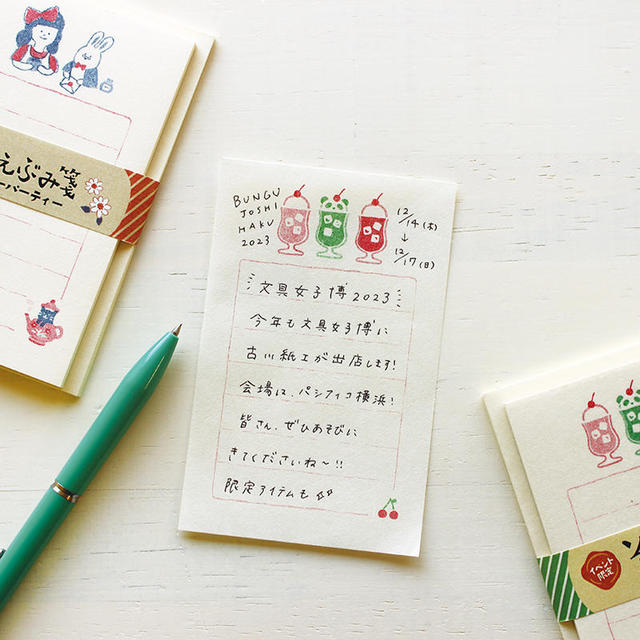 えぶみ箋
ーパーティー
BUNGU
JOSHI
HAKU
2023
12/14(木)
↓
12/17(日)
文具女子博2023
今年も文具女子博に
古川紙工が出店します!
会場は、パシフィコ横浜!
皆さん、ぜひあそびに
きてくださいね〜!!
限定アイテムも
イベント
限定